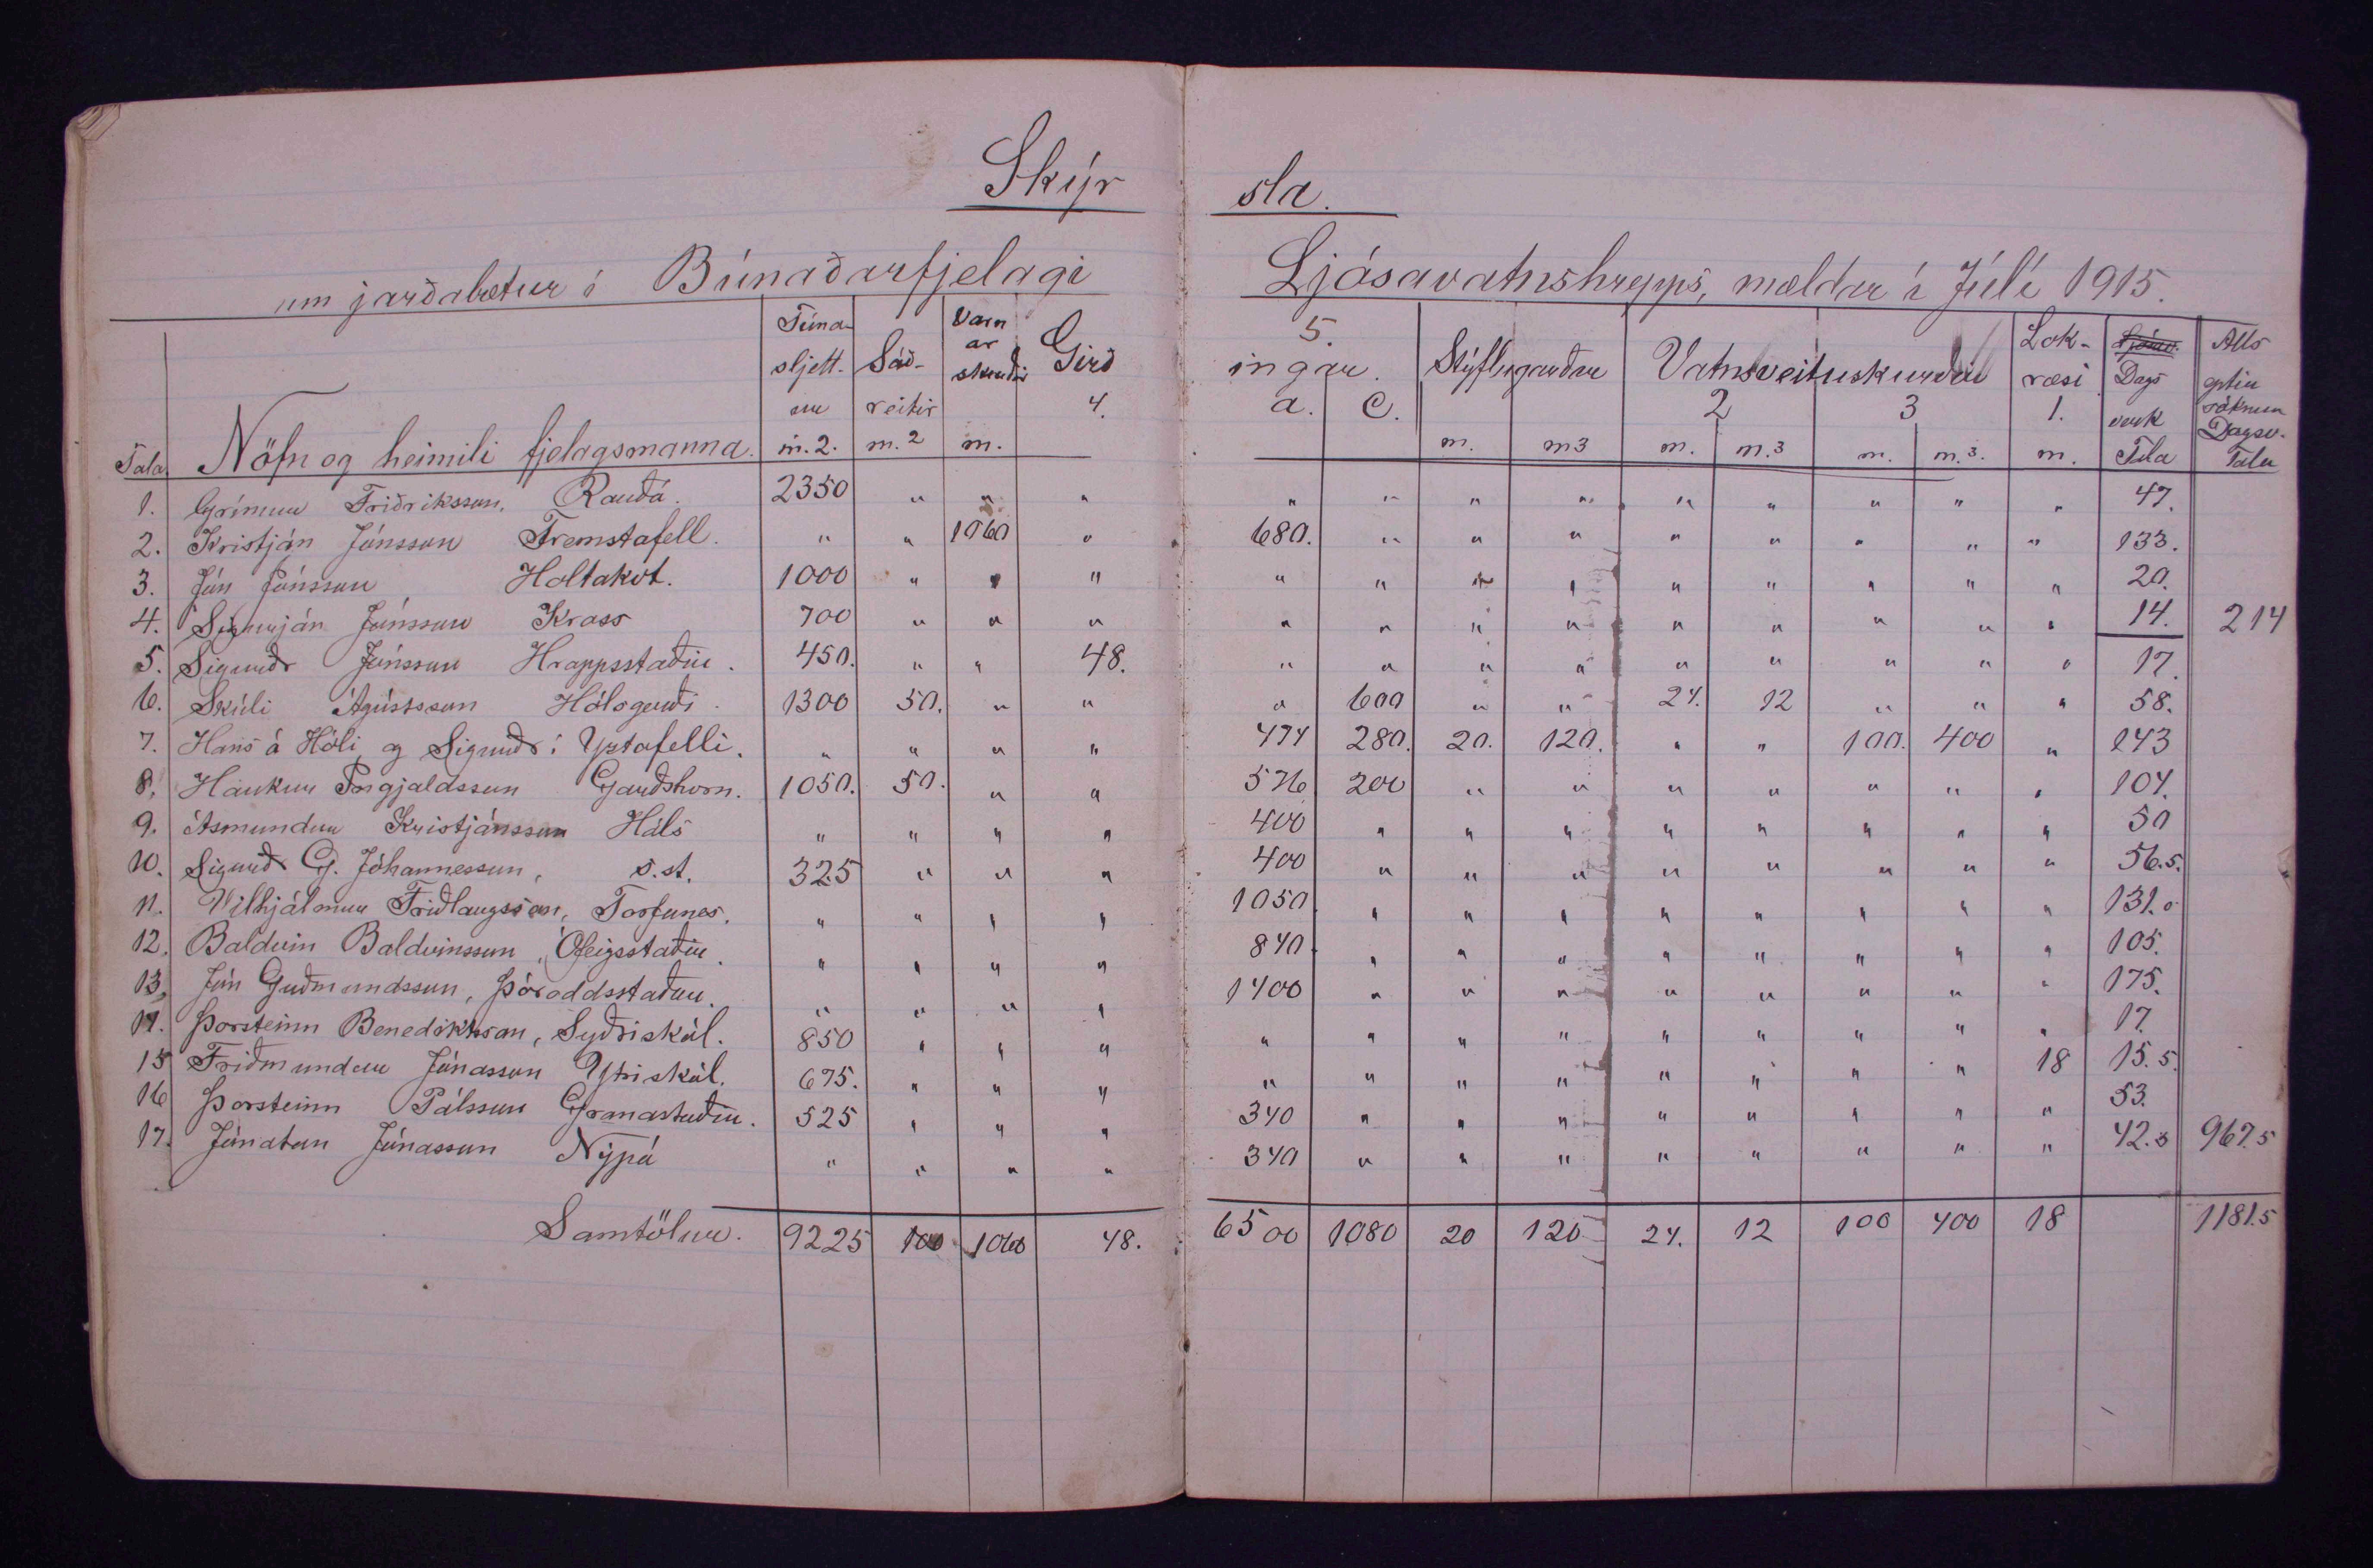 Skýrsla.
um jarðabætur í Búnaðarfjelagi Ljósavatnshrepps, mældar í Júlí 1915.
Tala. Nöfn og heimili fjelagsmanna. Túnasljettur m.2. Sáðreitir m.2 Varnarskurðir m. Girðingar. 4. 5. a. C. Stýflugarðar m. m3 Vatnsveituskurðir 2 m. m.3 3 m. m.3. Lokræsi 1. m. Dagsverk Tala Alls eptir sóknum Dagsv. Tala
1. Grímur Friðriksson, Rauðá. 2350 " " " " " " " " " " " " 47.
2. Kristján Jónsson Fremstafell. " " 1060 " 680. " " " " " " " " 133.
3. Jón Jónsson Holtakot. 1000 " " " " " " " " " " " " 20.
4. Sigurján Jónsson Kross 700 " " " " " " " " " " " " 14. 214
5. Sigurðr Jónsson Hrappsstaðir. 450. " " 48. " " " " " " " " " 17.
6. Skúli Ágústsson Hólsgerði. 1300 50. " " " 600 " " 24. 12 " " " 58.
7. Hans á Hóli og Sigurðr í Yztafelli. " " " " 474 280. 20. 120. " " 100. 400 " 243
8. Haukur Þorgjaldsson Garðshorn. 1050. 50. " " 576 200 " " " " " " " 104.
9. Ásmundur Kristjánsson Háls " " " " 400 " " " " " " " " 50
10. Sigurðr G. Jóhannesson, s.st. 325 " " " 400 " " " " " " " " 56.5.
11. Vilhjálmur Friðlaugsson, Torfunes. " " " " 1050. " " " " " " " " 131.0
12. Baldvin Baldvinsson, Ófeigsstaðir. " " " " 840. " " " " " " " " 105.
13. Jón Guðmundsson, Þóroddsstaður. " " " " 1400 " " " " " " " " 175.
14. Þorsteinn Benediktsson, Syðriskál. 850 " " " " " " " " " " " " 17.
15 Friðmundur Jónasson Ytriskál. 675. " " " " " " " " " " " 18 15.5.
16 Þorsteinn Pálsson Granastaðir. 525 " " " 340 " " " " " " " " 53.
17. Jónatan Jónasson Nýpá " " " " 340 " " " " " " " " 42.5 967.5
Samtölur. 9225 100 1060 48. 6500 1080 20 120 24. 12 100 400 18 1181.5